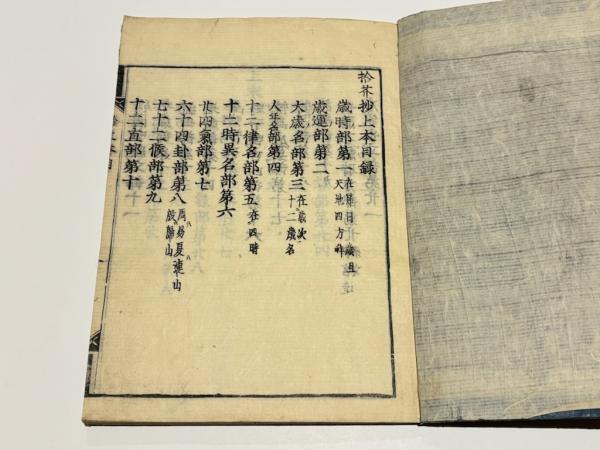 拾芥抄上本目録
歳時部第一
天地四方
歳運部第二
大歳名部第三 在歳次
十二歳名
人年名部第四
十二律名部第五 在四時
十二時異名部第六
廿四氣部第七
六十四卦部第八 周易夏連山
殷歸山
七十二候部第九
十二直部第十